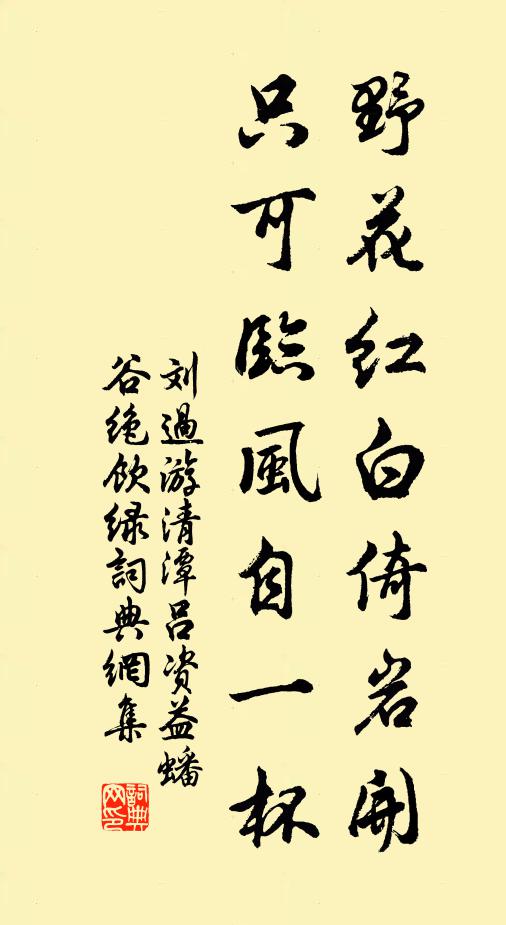 野花红白倚岩開
只可臨風自一杯
刘過游清潭吕资益蟠
谷绝饮绿詞典網集
詞典网印